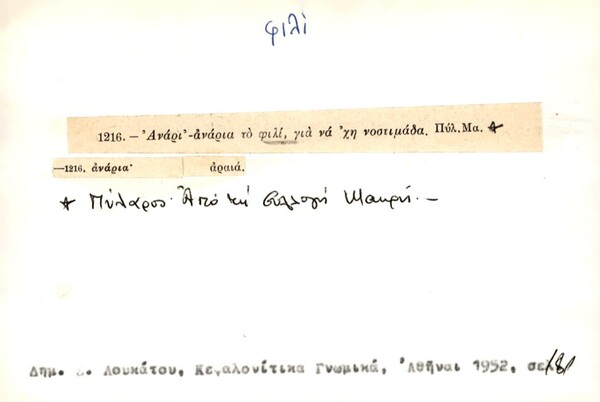 φιλί
1216. — Ἀνάρι'-ἀνάρια τὸ φιλί, γιὰ νά 'χη νοστιμάδα. Πύλ.Μα. ☆
—1216. ἀνάρια· ἀραιά.
☆ Πύλαρος. Ἀπό τή συλλογή Μακρή. —
Δημ. Σ. Λουκάτου, Κεφαλονίτικα Γνωμικά, Ἀθῆναι 1952, σελ